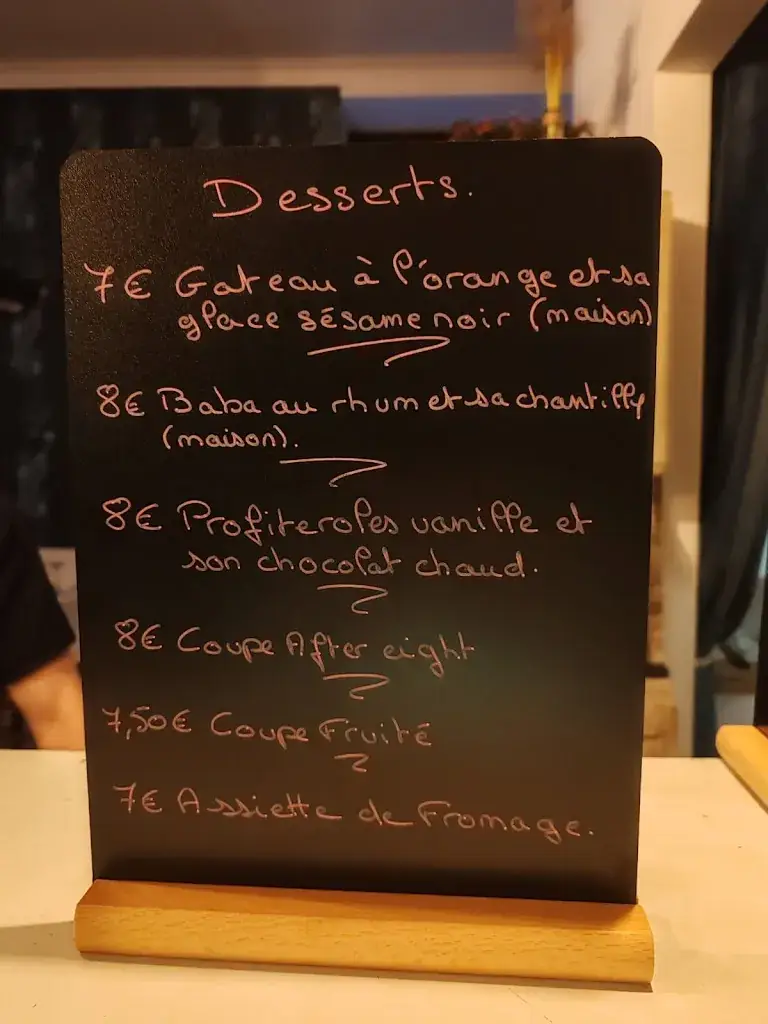 Desserts.
7€ Gateau à l'orange et sa
glace sésame noir (maison)
8€ Baba au rhum et sa chantilly
(maison).
8€ Profiteroles vanille et
son chocolat chaud.
8€ Coupe After eight
7,50€ Coupe Fruité
7€ Assiette de Fromage.